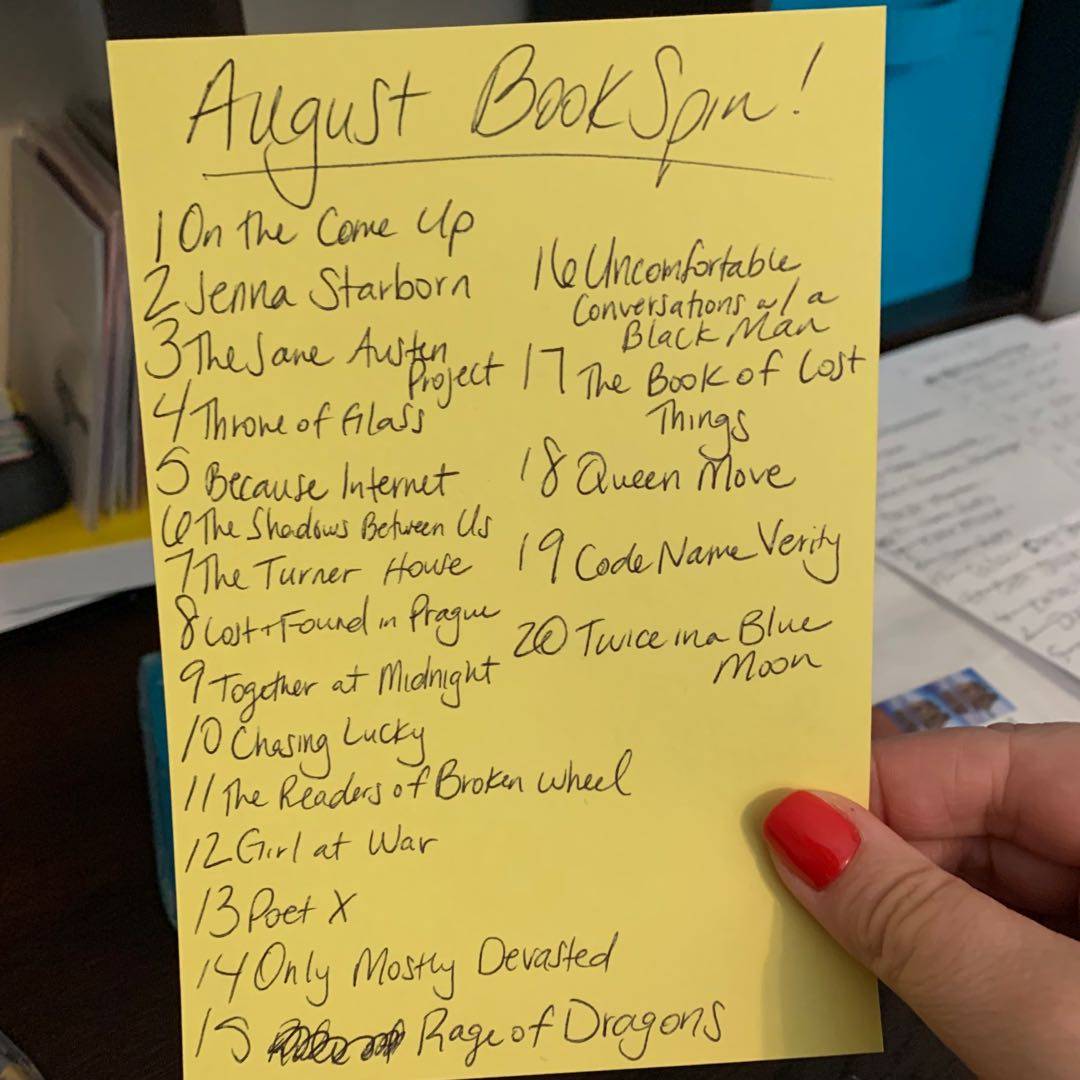 August BookSpin!
1 On the Come Up
2 Jenna Starborn
3 The Jane Austen
Project
4 Throne of Glass
5 Because Internet
6 The Shadows Between Us
7 The Turner House
8 Lost + Found in Prague
9 Together at Midnight
10 Chasing Lucky
11 The Readers of Broken Wheel
12 Girl at War
13 Poet X
14 Only Mostly Devasted
15 Rage of Dragons
16 Uncomfortable
Conversations w/ a
Black Man
17 The Book of Lost
Things
18 Queen Move
19 Code Name Verity
20 Twice in a Blue
Moon